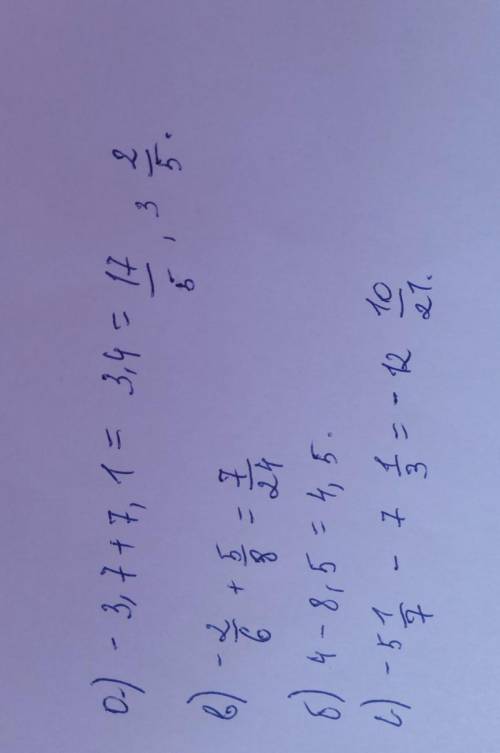 а) - 3,7 + 7,1 = 3,4 = 17/5, 3 2/5.
в) - 2/6 + 5/8 = 7/24
б) 4 - 8,5 = 4,5.
г) - 5 1/7 - 7 1/3 = - 12 10/21.